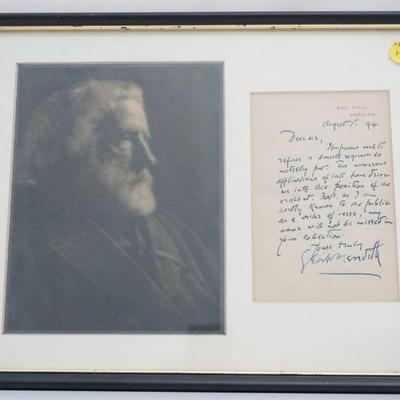 BOX HILL,
DORKING.
August 1st '94
Dear Sir,
It pains me to
refuse a small request so
modestly put. The numerous
applications of late have driven
me into this position of the
But, as I am
hardly known to the public
as a writer of verse, my
name will not be missed in
your collection.
Yours truly
George Meredith